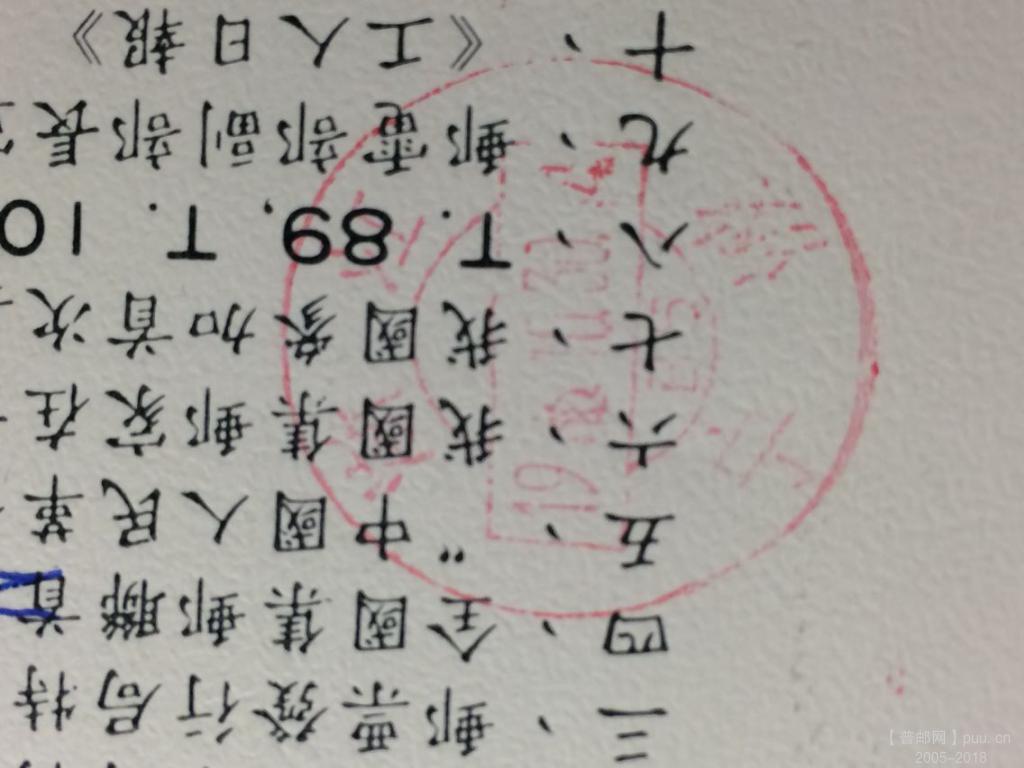 三、郵票發行局特
四、全國集郵聯首
五、"中國人民革
六、我國集郵家在
七、我國參加首次
八、T. 89, T. 10
九、郵電部副部長
十、《工人日報》
19
【普邮网】puu.cn
2005-2018